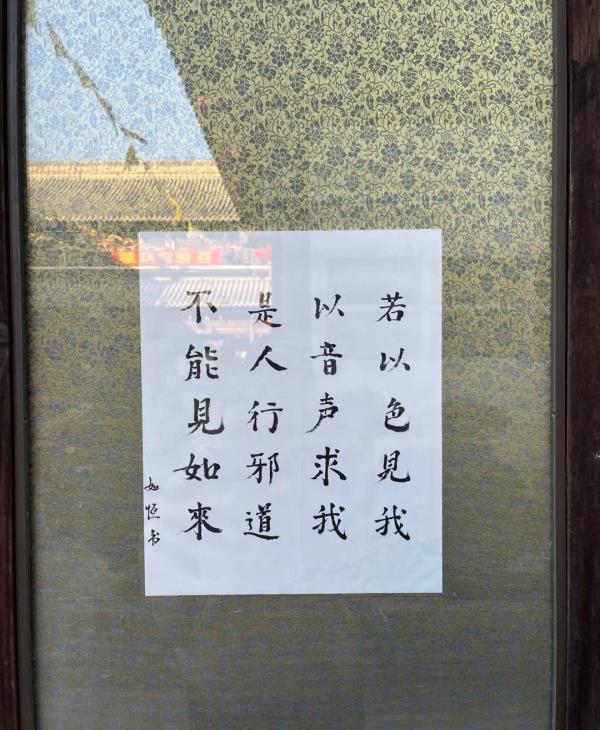 若以色見我
以音声求我
是人行邪道
不能見如來
如恒书